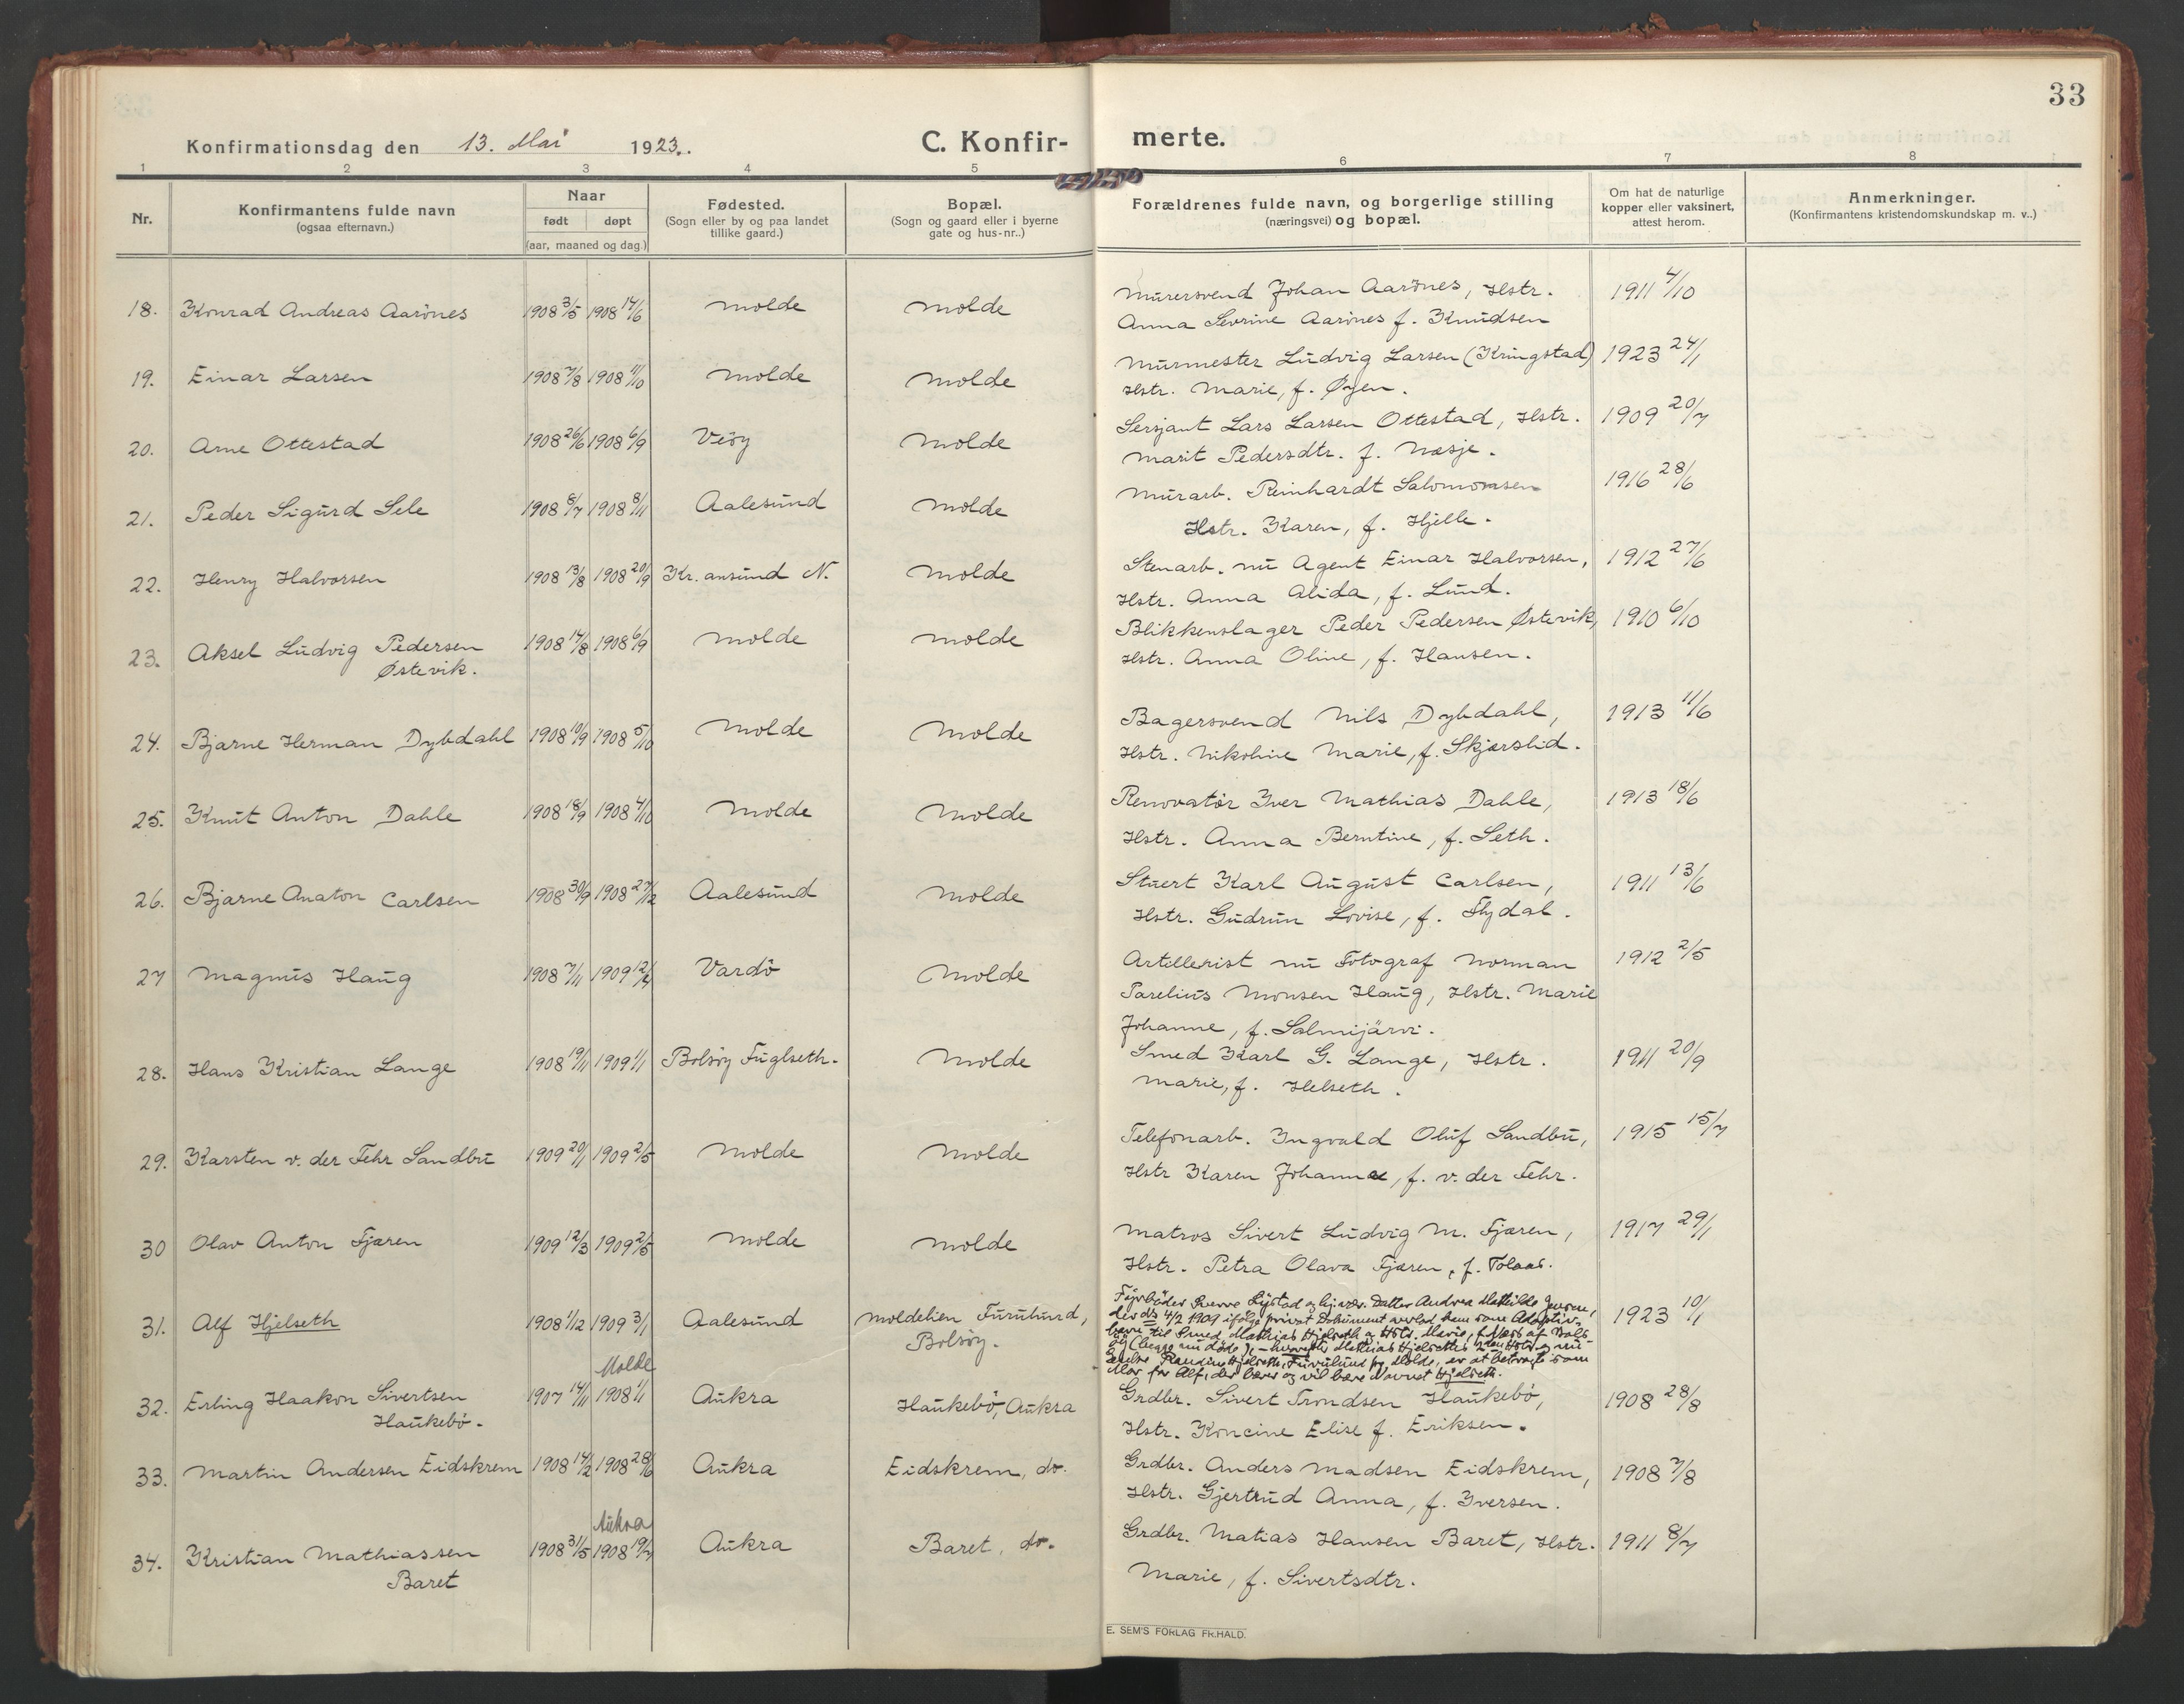 33
Konfirmationsdag den 13. Mai 1923.
C. Konfirmerte.
1 2 3 4 5 6 7 8
Nr.
Konfirmantens fulde navn
(ogsaa efternavn.)
Naar
født døpt
(aar, maaned og dag.)
Fødested.
(Sogn eller by og paa landet
tillike gaard.)
Bopæl.
(Sogn og gaard eller i byerne
gate og hus-nr..)
Forældrenes fulde navn, og borgerlige stilling
(næringsvei) og bopæl.
Om hat de naturlige
kopper eller vaksinert,
attest herom.
Anmerkninger.
(Konfirmantens kristendomskundskap m. v..)
18. Konrad Andreas Aarönes 1908 3/5 1908 14/6 Molde Molde Murersvend Johan Aarönes, Hstr. 1911 4/10
Anna Sevrine Aarönes f. Knudsen
19. Einar Larsen 1908 7/8 1908 11/10 Molde Molde Murmester Ludvig Larsen (Kringstad) 1923 24/1
Hstr. Marie, f. Øyen.
20. Arne Ottestad 1908 26/6 1908 6/9 Veöy Molde Sersjant Lars Larsen Ottestad, Hstr. 1909 20/7
Marit Pedersdtr. f. Næsje.
21. Peder Sigurd Sele 1908 8/7 1908 8/11 Aalesund Molde Murarb. Reinhardt Salomonsen 1916 28/6
Hstr. Karen, f. Hjelle.
22. Henry Halvorsen 1908 13/8 1908 20/9 Kr.ansund N. Molde Stenarb. nu Agent Einar Halvorsen, 1912 27/6
Hstr. Anna Alida, f. Lund.
23. Aksel Ludvig Pedersen 1908 14/8 1908 6/9 Molde Molde Blikkenslager Peder Pedersen Østevik, 1910 6/10
Østevik. Hstr. Anna Oline, f. Hansen.
24. Bjarne Herman Dybdahl 1908 10/9 1908 5/10 Molde Molde Bagersvend Nils Dybdahl, 1913 11/6
Hstr. Nikoline Marie, f. Skjærslid.
25. Knut Anton Dahle 1908 18/9 1908 4/10 Molde Molde Renovatör Iver Mathias Dahle, 1913 18/6
Hstr. Anna Berntine, f. Seth.
26. Bjarne Anaton Carlsen 1908 30/9 1908 27/12 Aalesund Molde Stuert Karl August Carlsen, 1911 13/6
Hstr. Gudrun Lovise, f. Flydal.
27 Magnus Haug 1908 7/11 1909 12/4 Vardö Molde Artillerist nu Fotograf Norman 1912 2/5
Parelius Monsen Haug, Hstr. Marie
Johanne, f. Salmijärvi.
28. Hans Kristian Lange 1908 19/11 1909 1/1 Bolsöy Fuglseth. Molde Smed Karl G. Lange, Hstr. 1911 20/9
Marie, f. Helseth.
29. Karsten v. der Fehr Sandbu 1909 20/1 1909 2/5 Molde Molde Telefonarb. Ingvald Oluf Sandbu, 1915 15/7
Hstr Karen Johanne, f. v. der Fehr.
30 Olav Anton Fjæren 1909 12/3 1909 2/5 Molde Molde Matros Sivert Ludvig M. Fjæren, 1917 29/1
Hstr. Petra Olava Fjæren, f. Tolaas.
31. Alf Hjelseth 1908 1/12 1909 3/1 Aalesund Moldelien Furulund, 1923 10/1
Bolsöy.
Fyrböder Sverre Lystad og Datter Andrea Mathilde Jensen,
4/2 1909 ifölge privat Dokument hem som Adoptiv-
til Smed Mathias Hjelseth og Hstr. Marie, f. af Bols-
öy (begge nu döde), Mathias Hjelseths 2den Hstr. nu
Hjelseth, Furulund pr. Molde, er at betragte som
Mor for Alf, der bærer og vil bære Navnet Hjelseth.
Molde
32. Erling Haakon Sivertsen 1907 14/11 1908 1/1 Aukra Haukebö, Aukra Grdbr. Sivert Trondsen Haukebö, 1908 28/8
Haukebö. Hstr. Koncine Elise f. Eriksen.
33. Martin Andersen Eidskrem 1908 14/2 1908 28/6 Aukra Eidskrem, do. Grdbr. Anders Madsen Eidskrem, 1908 7/8
Hstr. Gjertrud Anna, f. Iversen.
Aukra
34. Kristian Mathiassen 1908 31/5 1908 19/7 Aukra Baret, do. Grdbr. Matias Hansen Baret, Hstr. 1911 8/7
Baret Marie, f. Sivertsdtr.
E. SEM'S FORLAG FR.HALD.